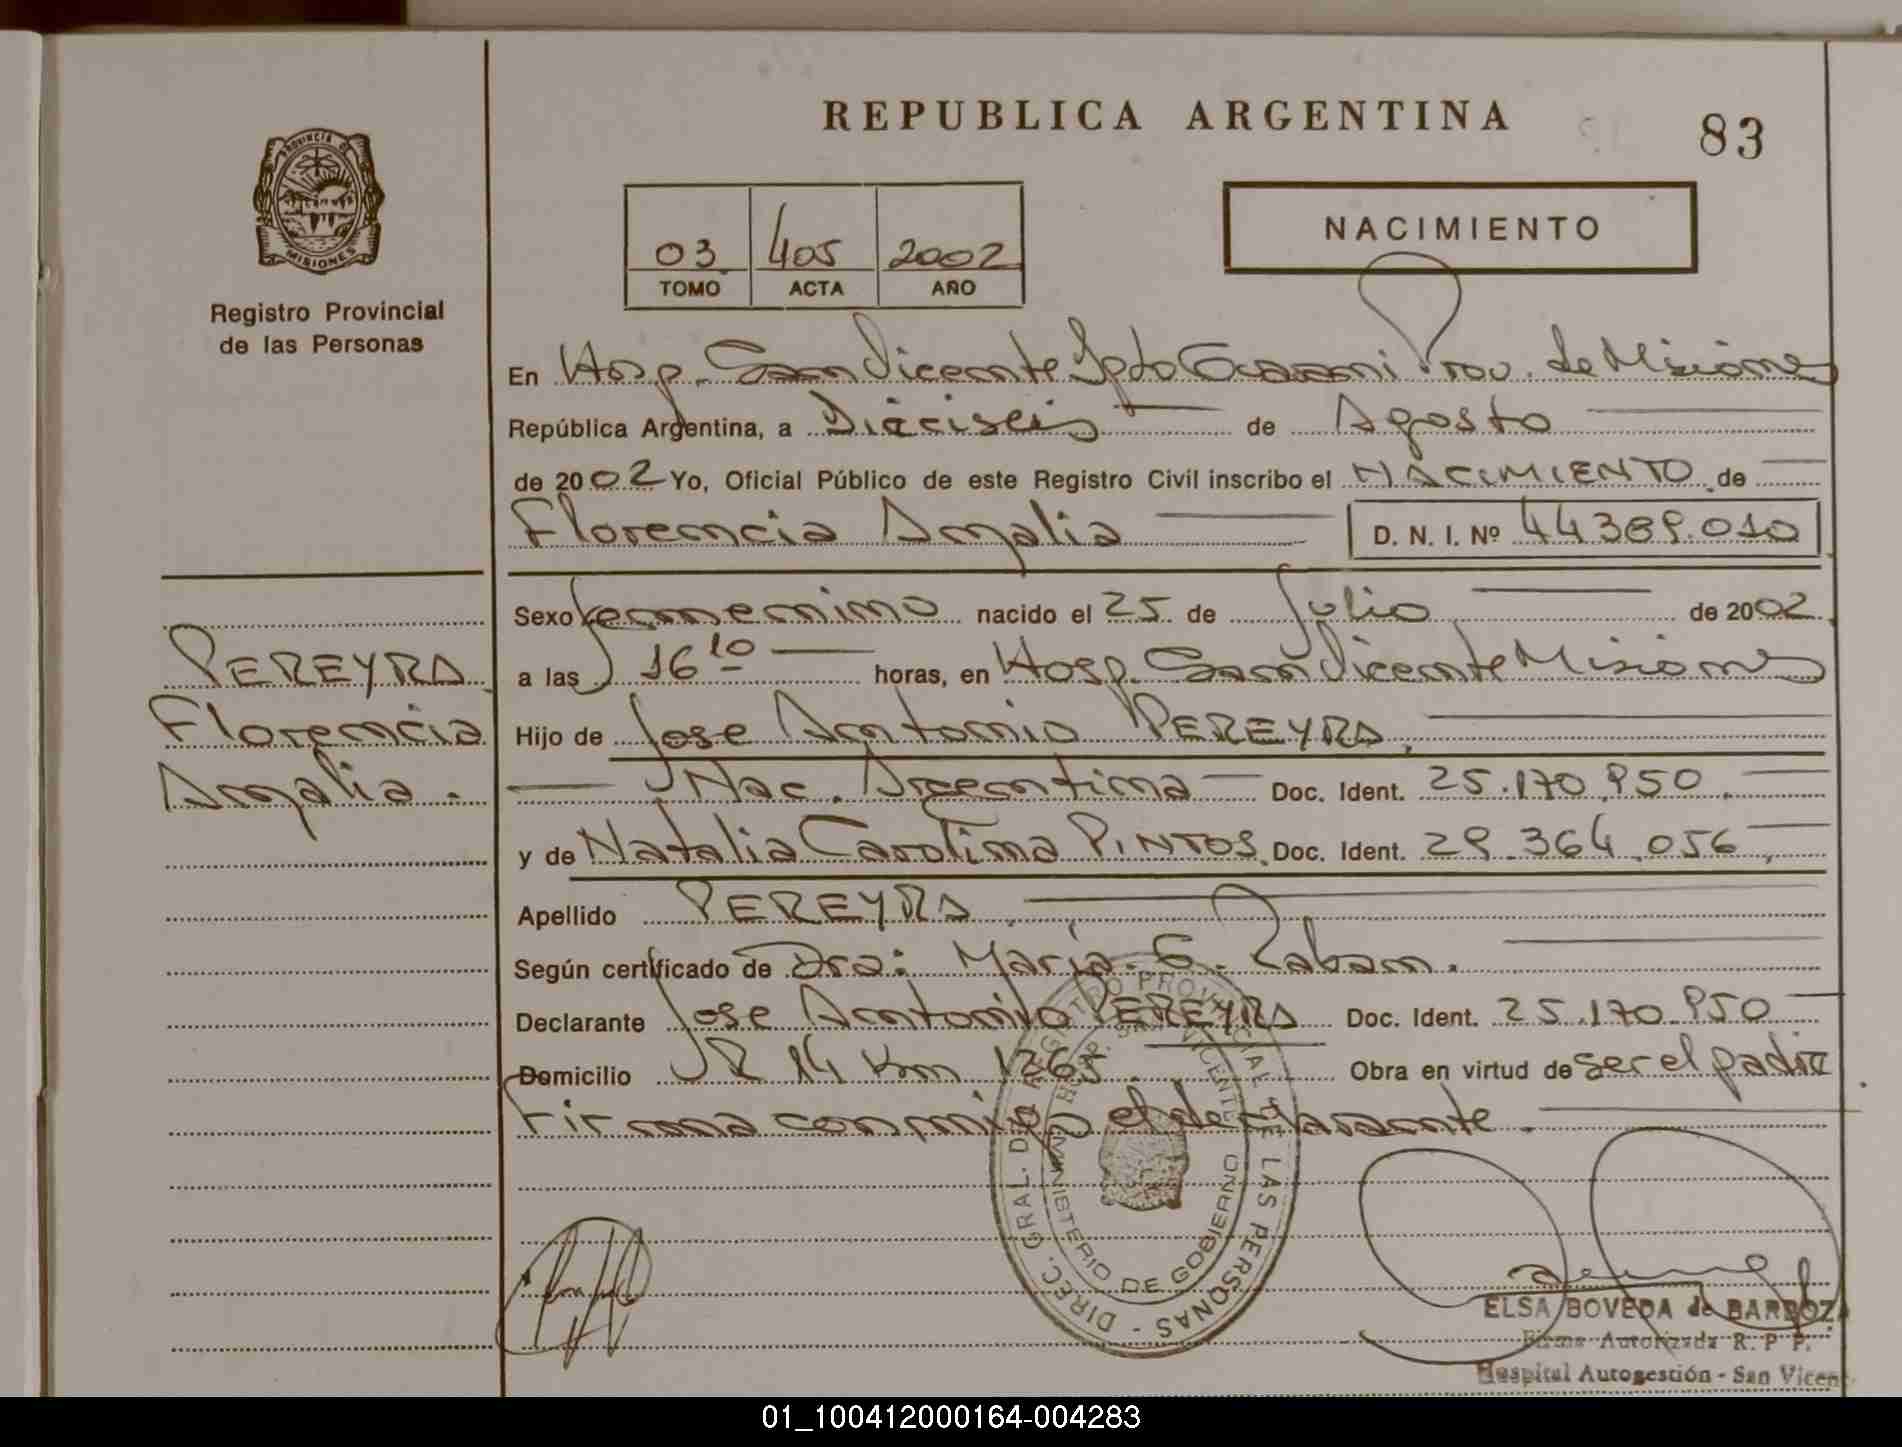 REPUBLICA ARGENTINA
83
PROVINCIA DE
MISIONES
Registro Provincial
de las Personas
03 405 2002
TOMO ACTA AÑO
NACIMIENTO
En Hosp. San Vicente Dpto Guarani Prov. de Misiones
República Argentina, a Dieciseis de Agosto
de 2002 Yo, Oficial Público de este Registro Civil inscribo el NACIMIENTO de
Florencia Amalia D. N. I. Nº 44.389.010
Sexo femenino nacido el 25 de Julio de 2002
a las 16 10 horas, en Hosp. San Vicente Misiones
Hijo de Jose Antonio PEREYRA,
Nac. Argentina Doc. Ident. 25.170.950
y de Natalia Carolina PINTOS. Doc. Ident. 29.364.056
Apellido PEREYRA
Según certificado de Dra: Maria G. Zaban.
Declarante Jose Antonio PEREYRA Doc. Ident. 25.170.950
Domicilio R 14 Km 1265 Obra en virtud de ser el padre
Firma conmigo el declarante.
PEREYRA
Florencia
Amalia.
DIREC. GRAL. DEL REGISTRO PROVINCIAL DE LAS PERSONAS -
HOSP. SAN VICENTE
MINISTERIO DE GOBIERNO
ELSA BOVEDA de BARBOZA
Firma Autorizada R. P. P.
Hospital Autogestión - San Vicente
01_100412000164-004283